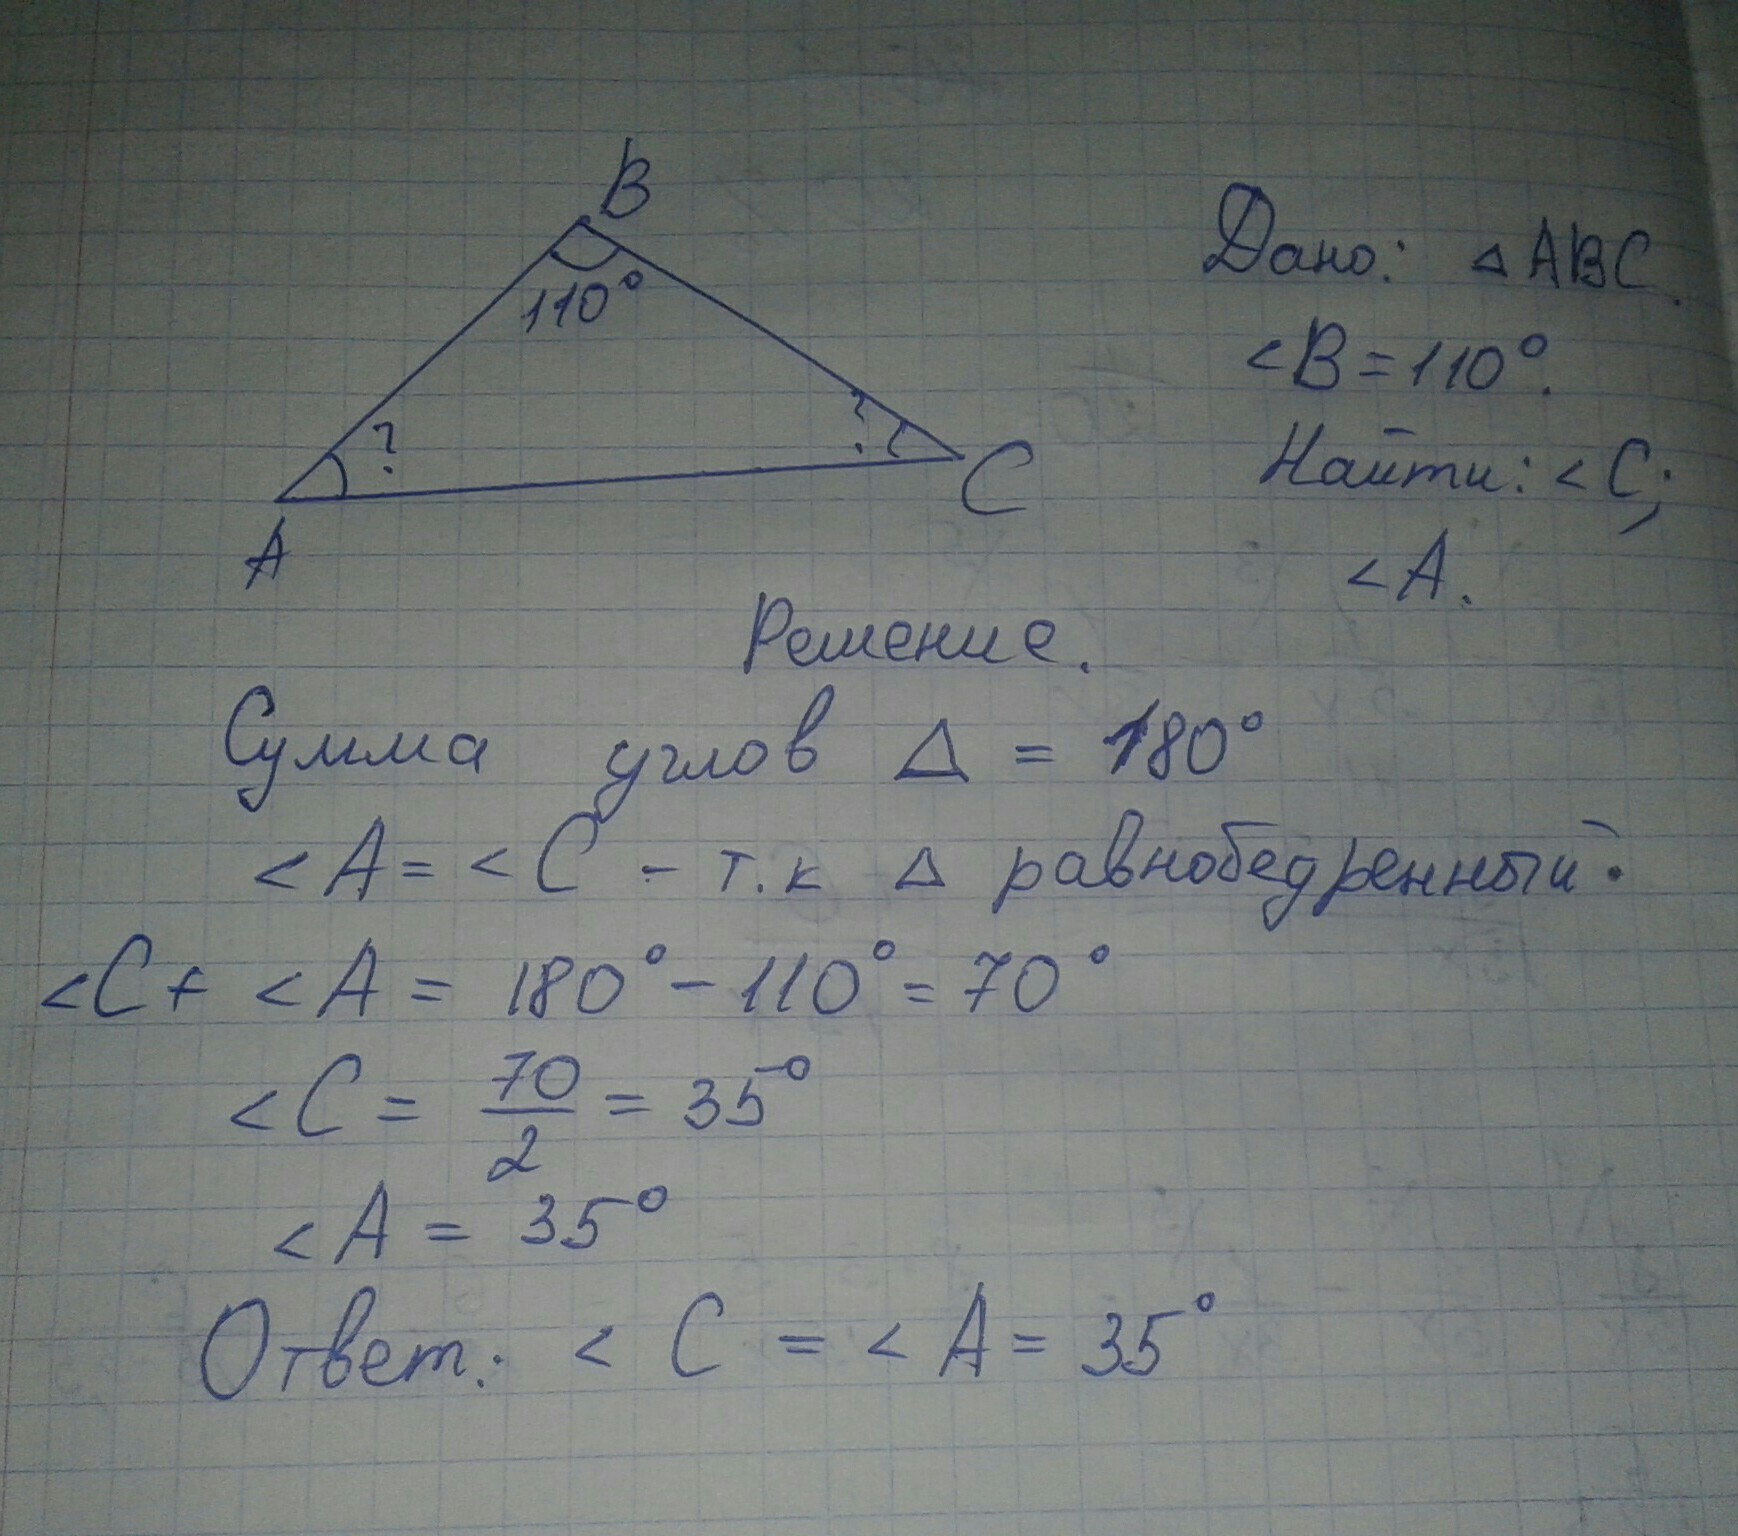 B
110°
?
?
A
C
Дано: △ABC.
<B=110°.
Найти: <C;
<A.
Решение.
Сумма углов △ = 180°
<A = <C - т.к △ равнобедренный.
<C+ <A = 180° - 110° = 70°
<C = 70/2 = 35°
<A = 35°
Ответ: <C = <A = 35°